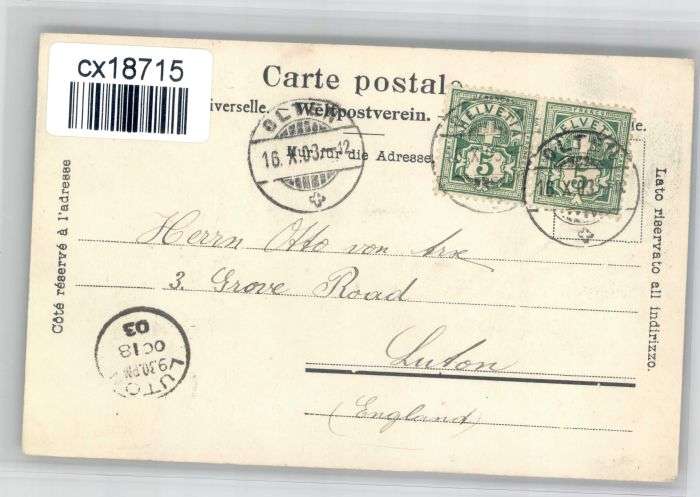 cx18715
Carte postale
iverselle. - Weltpostverein. - ie.
Nur für die Adresse.
OLTEN
16. X. 03. - 12
HELVETIA
5
HELVETIA
5
OLTEN
16. X. 03
Côté réservé à l'adresse
Lato riservato all indirizzo.
Herrn Otto von Arx
3. Grove Road
Luton
(England)
LUTON
9.30 PM
OC 18
03